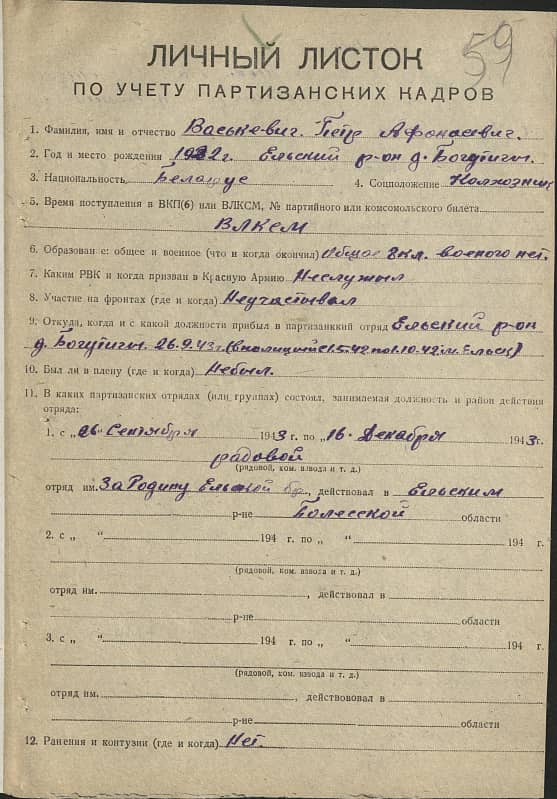 59
ЛИЧНЫЙ ЛИСТОК
ПО УЧЕТУ ПАРТИЗАНСКИХ КАДРОВ
1. Фамилия, имя и отчество Васькевич. Петр Афонасевич.
2. Год и место рождения 1922г. Ельский р-он д. Богутичи.
3. Национальность Белорус 4. Соцположение Колхозник
5. Время поступления в ВКП(б) или ВЛКСМ, № партийного или комсомольского билета
ВЛКСМ
6. Образован е: общее и военное (что и когда окончил) Общое 8кл. военого нет.
7. Каким РВК и когда призван в Красную Армию Неслужыл
8. Участие на фронтах (где и когда) Неучаствал
9. Откуда, когда и с какой должности прибыл в партизанкий отряд Ельский р-он
д. Богутичи. 26.9.43г. (вполиции с 1.5.42 по 1.10.42 м. Ельск)
10. Был ли в плену (где и когда) Небыл.
11. В каких партизанских отрядах (или группах) состоял, занимаемая должность и район действия
отряда:
1. с „26 Сентября 1943 г. по „16 Декабря 1943г.
радовой
(рядовой, ком. взвода и т. д.)
отряд им. За Родину Ельской бр., действовал в Ельским
р-не Полесской области
2. с „ “ 194 г. по „ “ 194 г.
(рядовой, ком. взвода и т. д.)
отряд им. , действовал в
р-не области
3. с „ “ 194 г. по „ “ 194 г.
(рядовой, ком. взвода и т. д.)
отряд им. , действововал в
р-не области
12. Ранения и контузии (где и когда) Нет.